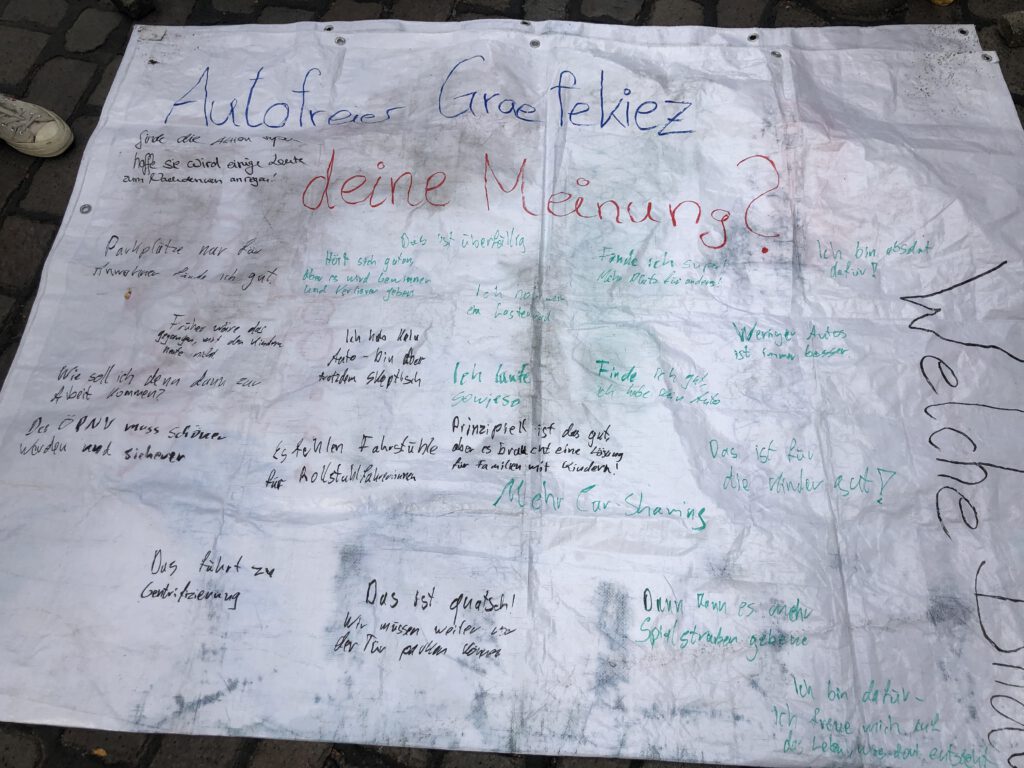 Autofreier Graefekiez
deine Meinung?
finde die Action super
hoffe sie wird einige Leute
zum Nachdenken anregen!
Parkplätze nur für
Anwohner fände ich gut
Das ist überfällig
Hört sich gut an,
aber es wird Gewinner
und Verlierer geben
Fände ich super!
Mehr Platz für andere!
Ich bin absolut
dafür!
Ich
ein Lastenrad
Früher wäre das
gegangen, mit den Kindern
heute nicht
Ich habe kein
Auto - bin aber
trotzdem skeptisch
Weniger Autos
ist immer besser
Wie soll ich denn dann zur
Arbeit kommen?
Ich laufe
sowieso
Finde ich gut
ich habe kein Auto
Der ÖPNV muss schöner
werden und sicherer
Es fehlen Fahrstühle
für Rollstuhlfahrerinnen
Prinzipiell ist das gut
aber es braucht eine Lösung
für Familien mit Kindern!
Das ist für
die Kinder gut!
Mehr Car-Sharing
Das führt zu
Gentrifizierung
Das ist quatsch!
Wir müssen weiter vor
der Tür parken können
Dann kann es mehr
Spielstraßen geben
Ich bin dafür -
Ich freue mich auf
das Leben, was dort entsteht
Welche